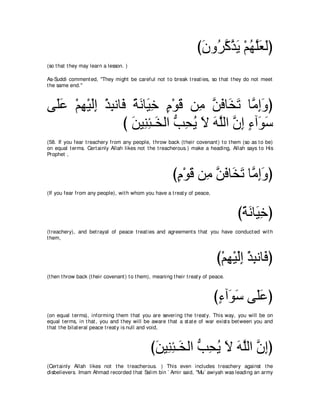 (لَعَلَّهُمْ يَذَّكَّرُونَ)
(so that they may learn a lesson. )
As-Suddi commented, "They might be careful not to break treaties, so that they do not meet
the same end.''
(وَإِمَّا تَخَافَنَّ مِن قَوْمٍ خِيَانَةً فَانبِذْ إِلَيْهِمْ عَلَى
سَوَآءٍ إِنَّ اللَّهَ لاَ يُحِبُّ الخَـئِنِينَ )
(58. If you fear treachery from any people, throw back (their covenant) to them (so as to be)
on equal terms. Certainly Allah likes not the treacherous.) make a heading, Allah says to His
Prophet ,
(وَإِمَّا تَخَافَنَّ مِن قَوْمٍ)
(If you fear from any people), with whom you have a treaty of peace,
(خِيَانَةً)
(treachery), and betrayal of peace treaties and agreements that you have conducted with
them,
(فَانبِذْ إِلَيْهِمْ)
(then throw back (their covenant) to them), meaning their treaty of peace.
(عَلَى سَوَآءٍ)
(on equal terms), informing them that you are severing the treaty. This way, you will be on
equal terms, in that, you and they will be aware that a state of war exists between you and
that the bilateral peace treaty is null and void,
(إِنَّ اللَّهَ لاَ يُحِبُّ الخَـئِنِينَ)
(Certainly Allah likes not the treacherous. ) This even includes treachery against the
disbelievers. Imam Ahmad recorded that Salim bin `Amir said, "Mu`awiyah was leading an army